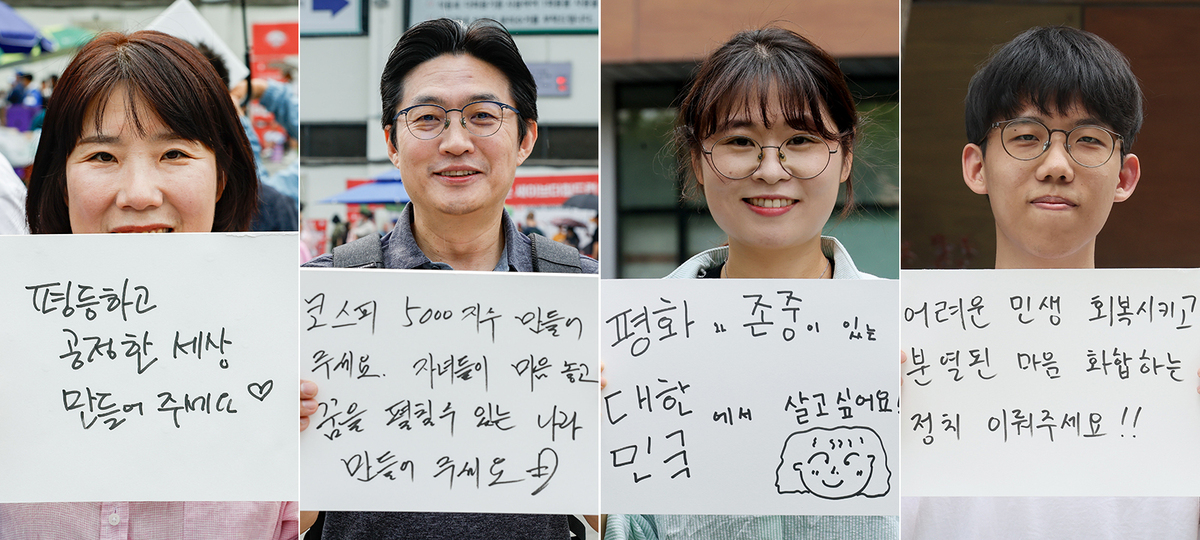 평등하고
공정한 세상
만들어 주세요♡
코스피 5000 지수 만들어
주세요. 자녀들이 마음 놓고
꿈을 펼칠수 있는 나라
만들어 주세요
평화와 존중이 있는
대한
민국에서 살고싶어요!
어려운 민생 회복시키고
분열된 마음 화합하는
정치 이뤄주세요!!